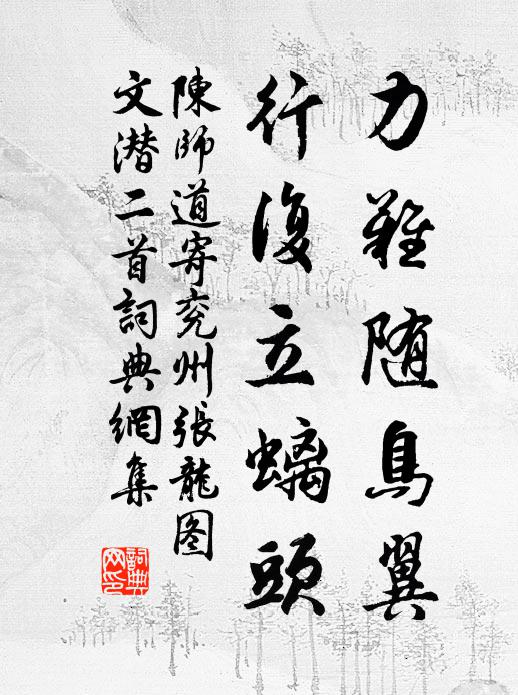 力難随鳥翼
行復立螭頭
陳師道寄兖州張龍图
文潜二首詞典網集
詞典
网印